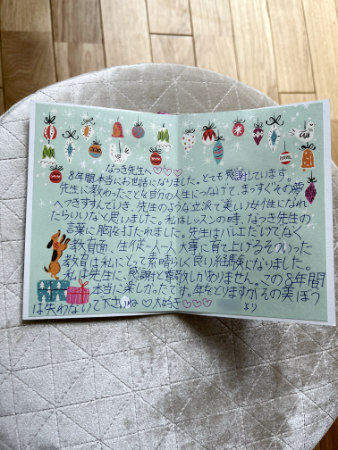 なつき先生へ♡♡♡
8年間本当にお世話になりました。とても感謝しています。
先生に教わったことを自分の人生につなげて、まっすぐその夢
へつきすすんでいき、先生のような立派で美しい女性になれ
たらいいなと思いました。私はレッスンの時、なつき先生の
言葉に胸を打たれました。先生はバレエだけでなく
教育面、生徒一人一人大事に育て上げるそういった
教育は私にとって素晴らしく良い経験になりました。
私は先生に、感謝と尊敬しかありません。この8年間
本当に楽しかったです。年をとりますがその美ぼう
は失わないで下さいね ♡大好き♡♡♡♡ より